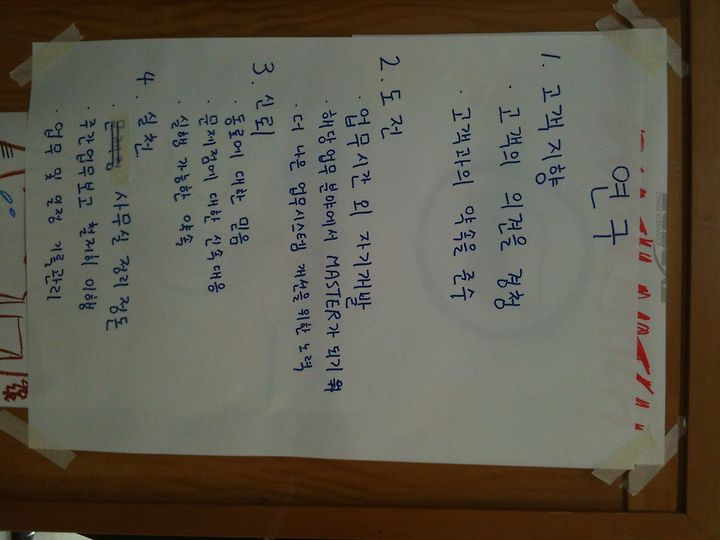 연구
1. 고객 지향
· 고객의 의견을 경청
· 고객과의 약속을 준수
2. 도전
· 업무시간 외 자기개발
· 해당 업무 분야에서 MASTER가 되기 위
· 더 나은 업무시스템 개선을 위한 노력
3. 신뢰
· 동료에 대한 믿음
· 문제점에 대한 신속 대응
· 실행 가능한 약속
4. 실천
· 사무실 정리 정돈
· 주간업무보고 철저히 이행
· 업무 및 일정 기록관리